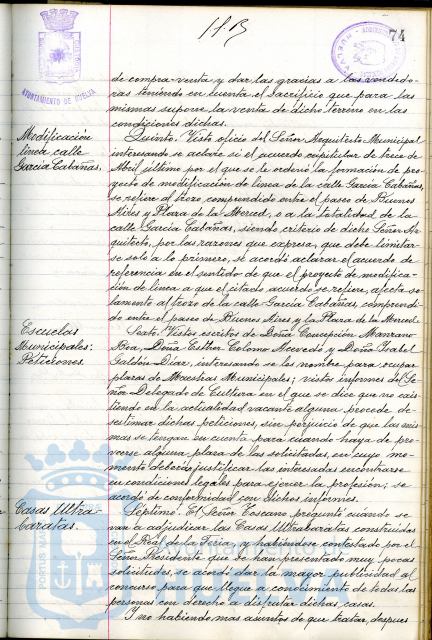 74
AYUNTAMIENTO DE HUELVA
de compra-venta y dar las gracias a las vendedo-
ras teniendo en cuenta el sacrificio que para las
mismas supone la venta de dicho terreno en las
condiciones dichas.
Modificación
línea calle
García Cabañas.
Quinto. Visto oficio del Señor Arquitecto Municipal
interesando se aclare si el acuerdo capitular de trece de
Abril último por el que se le ordenó la formación de pro-
yecto de modificación de línea de la calle García Cabañas,
se refiere al trozo comprendido entre el paseo de Buenos
Aires y Plaza de la Merced, o a la totalidad de la
calle García Cabañas, siendo criterio de dicho Señor Ar-
quitecto, por las razones que expresa, que debe limitar-
se solo a lo primero, se acordó aclarar el acuerdo de
referencia en el sentido de que el proyecto de modifica-
ción de línea a que el citado acuerdo se refiere, afecta so-
lamente al trozo de la calle García Cabañas, comprendi-
do entre el paseo de Buenos Aires y la Plaza de la Merced.
Escuelas
Municipales:
Peticiones.
Sexto. Vistos escritos de Doña Concepción Manzano
Rea, Doña Esther Colomo Acevedo y Doña Isabel
Galdón Díaz, interesando se les nombre para ocupar
plazas de Maestras Municipales; vistos informes del Se-
ñor Delegado de Cultura en el que se dice que no exis-
tiendo en la actualidad vacante alguna procede de-
sestimar dichas peticiones, sin perjuicio de que las mis-
mas se tengan en cuenta para cuando haya de pro-
verse alguna plaza de las solicitadas, en cuyo mo-
mento deberán justificar las interesadas encontrarse
en condiciones legales para ejercer la profesión; se
acordó de conformidad con dichos informes.
Casas Ultra-
baratas.
Septimo. El Señor Toscano preguntó cuándo se
van a adjudicar las Casas Ultrabaratas construidas
en el Real de la Feria, y habiéndose contestado por el
Señor Presidente que se han presentado muy pocas
solicitudes, se acordó dar la mayor publicidad al
concurso para que llegue a conocimiento de todas las
personas con derecho a disfrutar dichas casas.
Y no habiendo mas asuntos de que tratar, despues